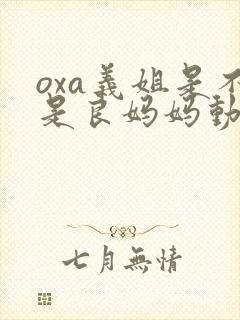 oxa義姐是不
是良妈妈動
七月無情